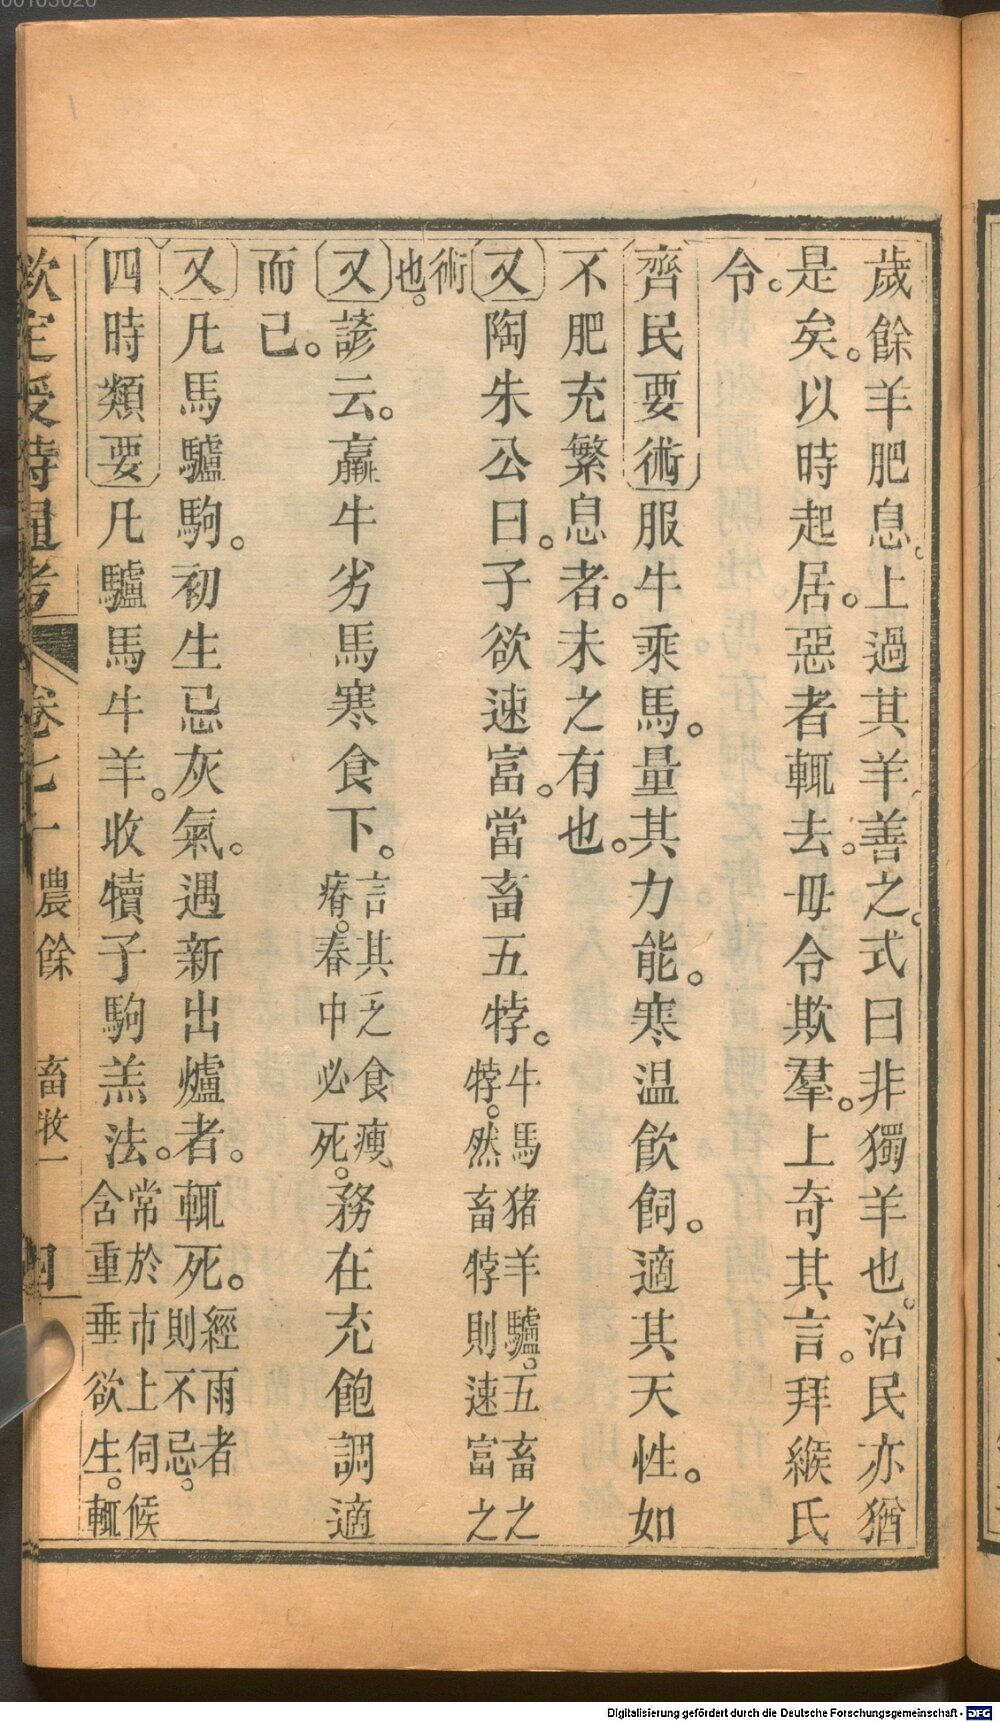 歲餘羊肥息。上過其羊善之。式曰非獨羊也。治民亦猶
是矣。以時起居。惡者輒去。毋令欺羣。上奇其言。拜緱氏
令。
齊民要術服牛乘馬。量其力能。寒温飲飼。適其天性。如
不肥充繁息者。未之有也。
又陶朱公曰。子欲速富。當畜五牸。牛馬猪羊驢。五畜之
牸。然畜牸則速富之
術
也。
又諺云。羸牛劣馬寒食下。言其乏食瘦
瘠。春中必死。務在充飽調適
而已。
又凡馬驢駒。初生忌灰氣。遇新出爐者。輒死。經雨者
則不忌。
四時類要凡驢馬牛羊。收犢子駒羔法。常於市上伺候
含重垂欲生。輒
欽定授時通考 卷七十一 農餘 畜牧一 四
Digitalisierung gefördert durch die Deutsche Forschungsgemeinschaft - DFG